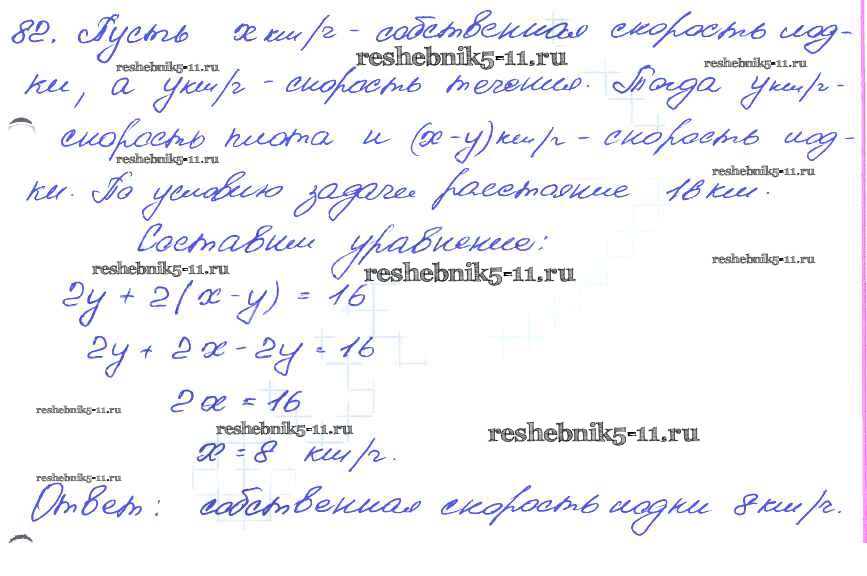 82. Пусть x км/ч - собственная скорость лод-
reshebnik5-11.ru
reshebnik5-11.ru
reshebnik5-11.ru
ки, а y км/ч - скорость течения. Тогда y км/ч -
скорость плота и (x-y) км/ч - скорость лод-
reshebnik5-11.ru
reshebnik5-11.ru
ки. По условию задачи расстояние 16 км.
Составим уравнение:
reshebnik5-11.ru
reshebnik5-11.ru
reshebnik5-11.ru
2y + 2(x-y) = 16
2y + 2x - 2y = 16
2x = 16
reshebnik5-11.ru
reshebnik5-11.ru
reshebnik5-11.ru
x = 8 км/ч.
reshebnik5-11.ru
Ответ: собственная скорость лодки 8 км/ч.